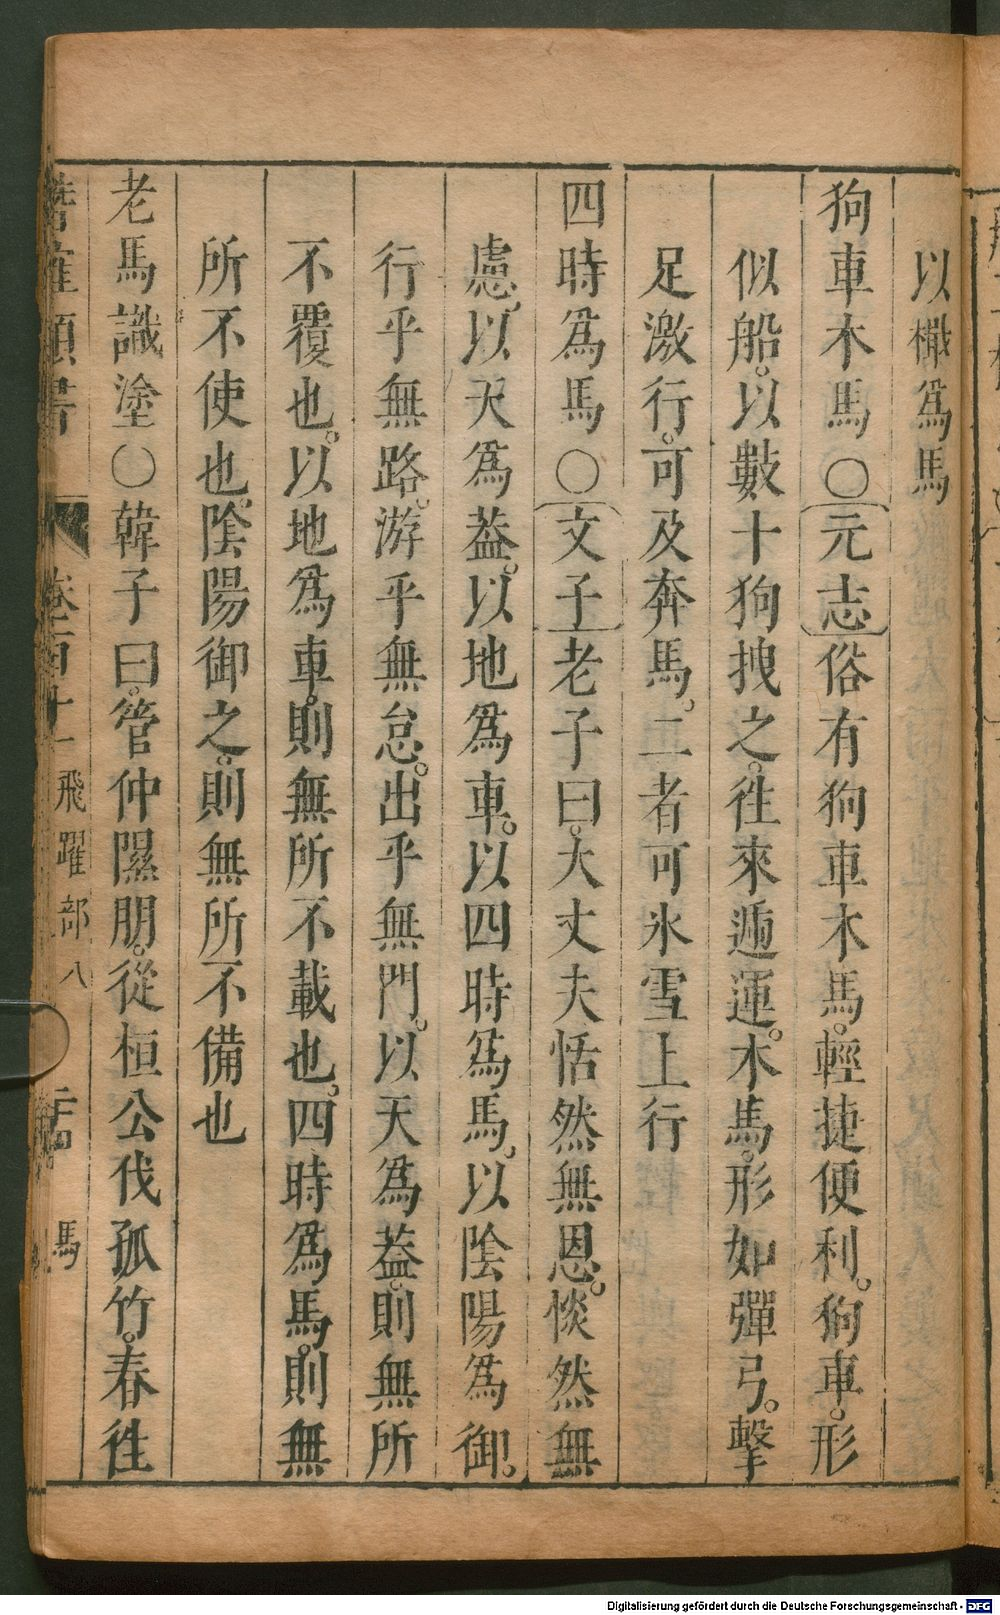 以橇爲馬
狗車木馬○元志俗有狗車木馬。輕捷便利。狗車。形
似船。以數十狗拽之。徃來遞運。木馬。形如彈弓。擊
足激行。可及奔馬。二者可氷雪上行
四時爲馬○文子老子曰。大丈夫恬然無恩。惔然無
慮。以天爲葢。以地爲車。以四時爲馬。以陰陽爲御。
行乎無路。游乎無怠。出乎無門。以天爲葢。則無所
不覆也。以地爲車。則無所不載也。四時爲馬。則無
所不使也。陰陽御之。則無所不備也
老馬識塗○韓子曰。管仲隰朋。從桓公伐孤竹。春徃
卷百十一 飛躍部八 馬
Digitalisierung gefördert durch die Deutsche Forschungsgemeinschaft - DFG